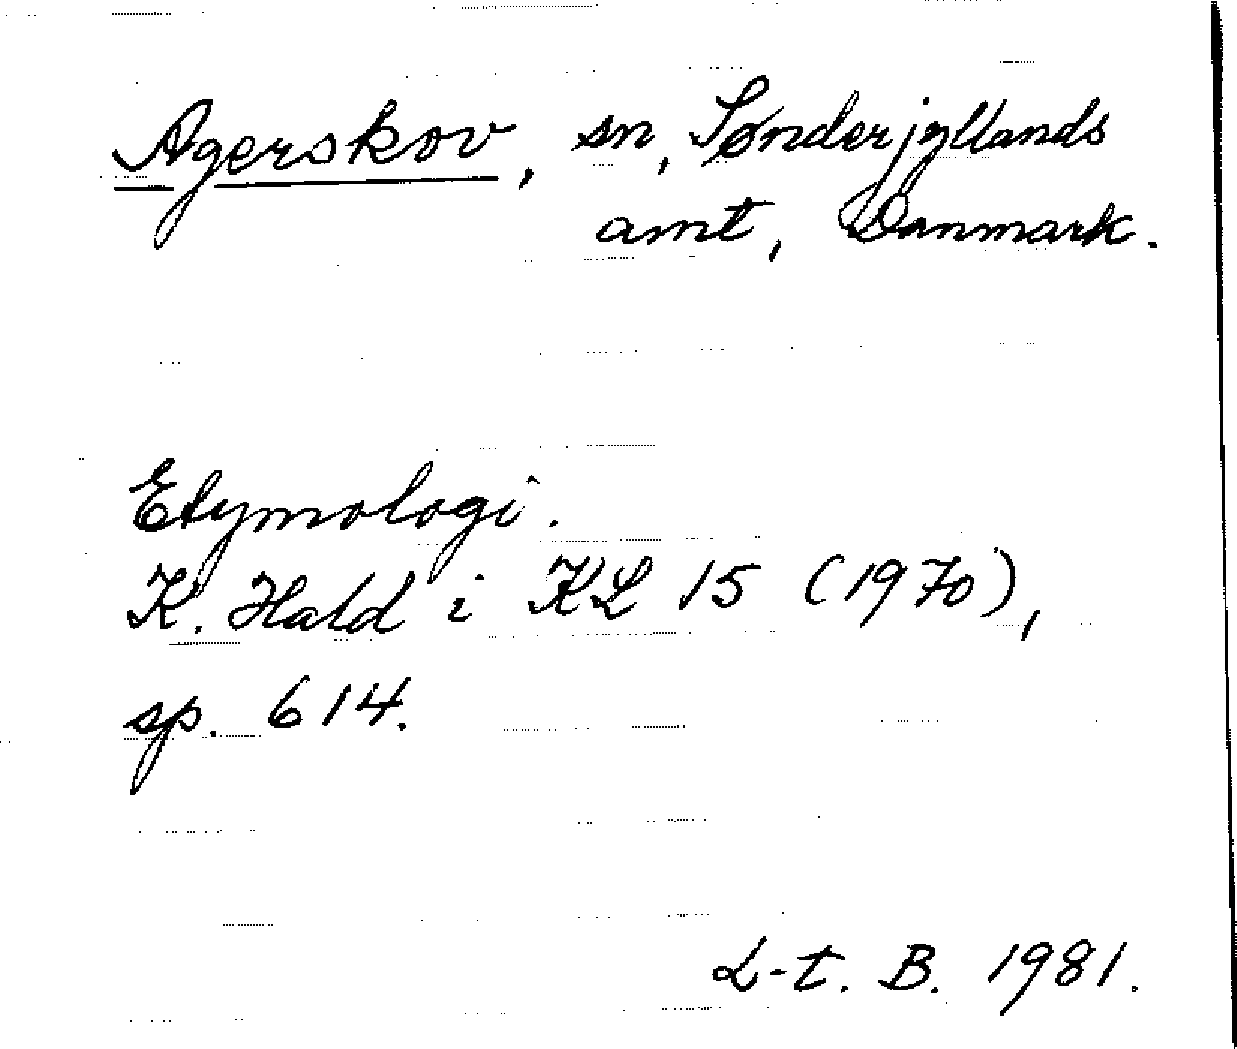 Agerskov, sn, Sønderjyllands
amt, Danmark.
Etymologi.
K. Hald i KL 15 (1970),
sp. 614.
L-t. B. 1981.